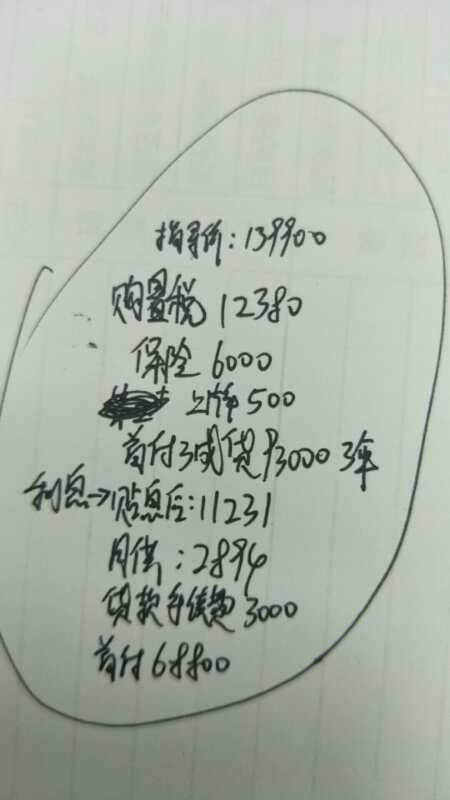 指导价：139900
购置税 12380
保险 6000
上牌 500
首付3成贷93000 3年
利息→贴息后：11231
月供：2894
贷款手续费 3000
首付 68800